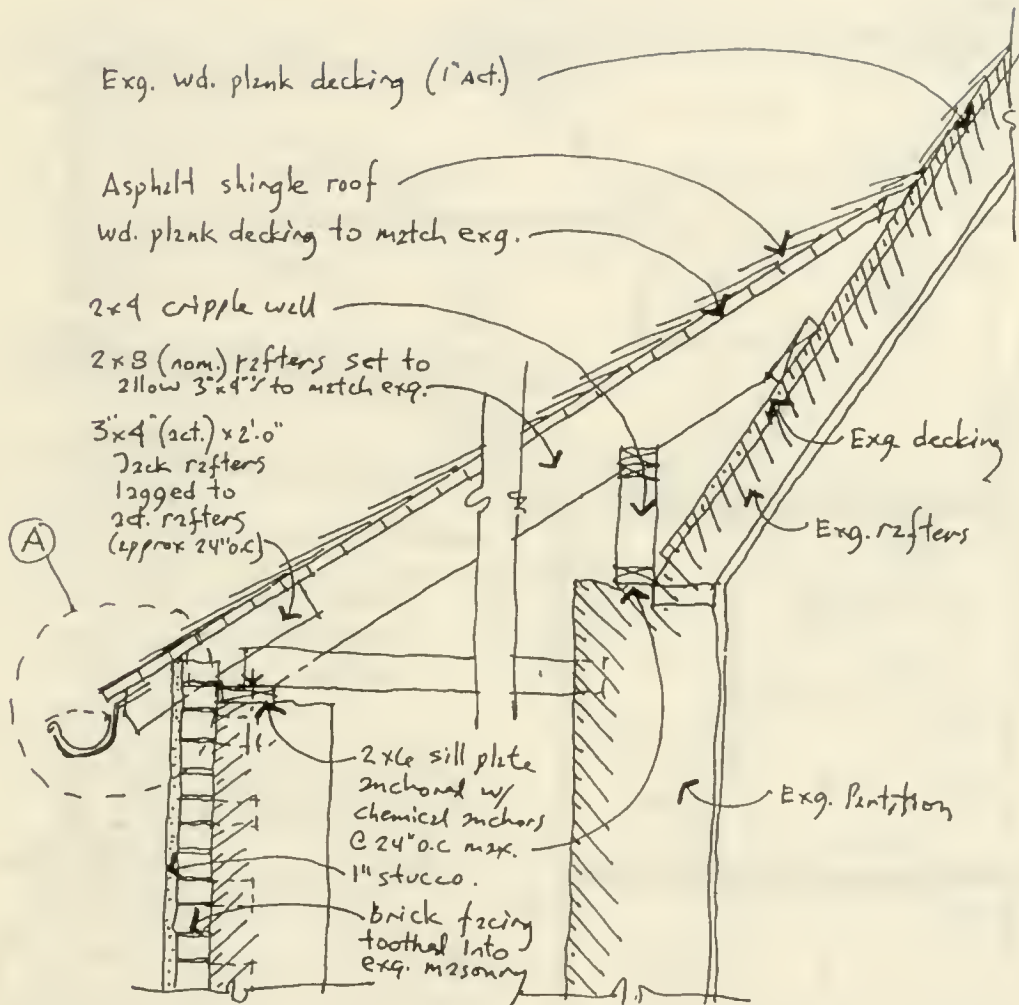 Exg. wd. plank decking (1" act.)
Asphalt shingle roof
wd. plank decking to match exg.
2x4 cripple wall
2x8 (nom.) rafters set to
allow 3"x4"'s to match exg.
3"x4" (act.) x 2'-0"
Jack rafters
lagged to
act. rafters
(approx 24" o.c)
A
Exg. decking
Exg. rafters
2x6 sill plate
anchored w/
chemical anchors
@ 24" o.c max.
Exg. Partition
1" stucco.
brick facing
toothed into
exg. masonry